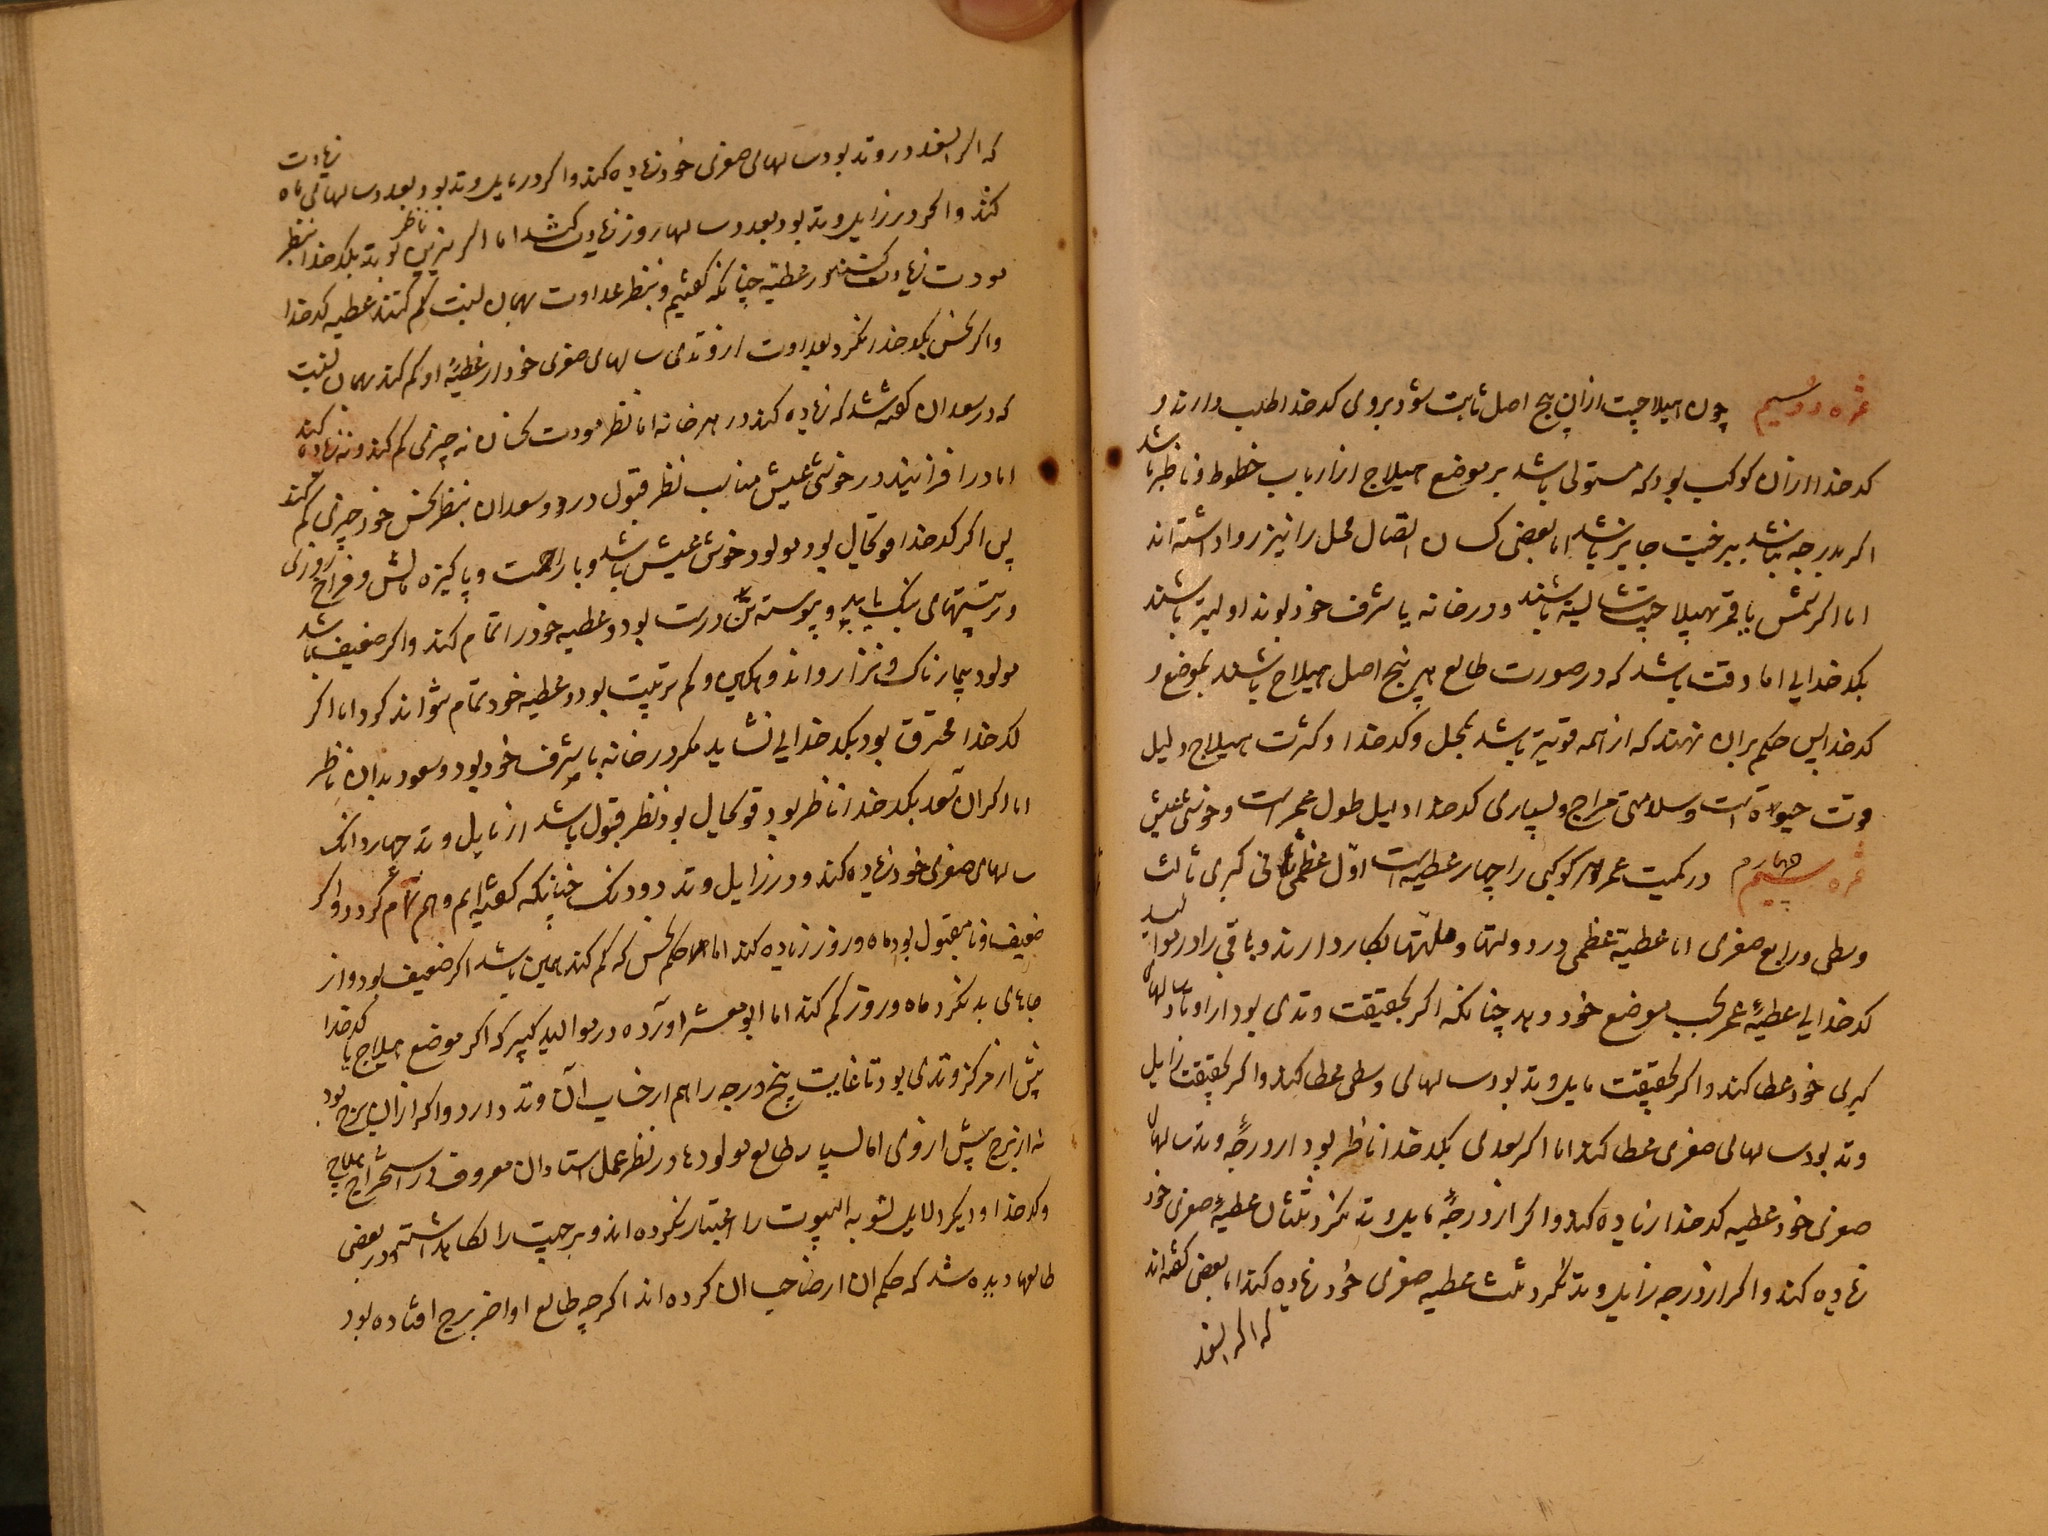 ثمره دو سیم چون هیلاجیت ازان پنج اصل ثابت شود بر وی کدخدا طلب دارند و
کدخدا ازان کوکب بود که مستولی باشد بر موضع هیلاج از ارباب خطوط و ناظر باشد
اکر بدرجه نباشد ببرخیت جایز باشد اما بعضی کسان اتصال محل را نیز روا داشته اند
اما اکر شمس یا قمر هیلاجیت شایسته باشند و در خانه یا شرف خود بوند اولیتر باشند
بکدخدایی اما وقت باشد که در صورت طالع هر پنج اصل هیلاج باشند بموضع و
کدخدا پس حکم بران نهند که از همه قویتر باشد بمحل و کدخدا و کثرت هیلاج دلیل
قوت حیوة است و سلامتی مزاج و بسیاری کدخدا دلیل طول عمر است و خوشی عیش
ثمره چهارم سیم در کمیت عمر هر کوکبی را چهار عطیه است اول عظمی ثانی کبری ثالث
وسطی و رابع صغری اما عطیه عظمی در دولتها و ملتها بکار دارند و باقی را در موالید
کدخدایی عطیهٔ عمر بحسب موضع خود دهد چنانکه اکر بحقیقت وتدی بود از اوتاد سالهای
کبری خود عطا کند و اکر بحقیقت مایل وتد بود سالهای وسطی عطا کند و اکر بحقیقت زایل
وتد بود سالهای صغری عطا کند اما اکر سعدی بکدخدا ناظر بود از درجهٔ وتد سالهای
صغری خود عطیه کدخدا زیاده کند و اکر از درجهٔ مایل وتد نکرد ثلثان عطیهٔ صغری خود
زیاده کند و اکر از درجه زایل وتد نکرد ثلث عطیه صغری خود زیاده کند اما بعضی کفته اند
که اکر السعد
که اکر السعد در وتد بود سالهای صغری خود زیاده کند و اکر در مایل وتد بود بعدد سالهای ماه زیادت
کند و اکر در زایل وتد بود بعدد سالها روز زیادت کند اما اکر نیرین ناظر بود بکدخدا بنظر
مودت زیادت کنند در عطیه چنانکه کفتیم و بنظر عداوت بهمان نسبت کم کنند عطیه کدخدا
و اکر نحس بکدخدا نکرد بعداوت از وتدی سالهای صغری خود از عطیهٔ او کم کند بهمان نسبت
که در سعدان کفته شد که زیاده کند در هر خانه اما نظر مودت نحسان نه چیزی کم کند و نه زیاده کند
اما در افزانید در خوشی عیش مناسب نظر قبول در دو سعدان بنظر نحس خود چیزی کم کند
پس اکر کدخدا قوی حال بود مولود خوش عیش باشد و با راحت و پاکیزه مالش و فراخ روزی
و ترتیبتهای نیک یابد و پیوسته تن درست بود و عطیه خود را تمام کند و اکر ضعیف باشد
مولود بیمارناک و نزار و اندوهکین و کم ترتیب بود و عطیه خود تمام نتواند کرد اما اکر
کدخدا محترق بود بکدخدایی نشاید مکر در خانه یا شرف خود بود و سعود بدان ناظر
اما اکر ان سعد بکدخدا ناظر بود قوی حال بود نظر قبول باشد از مایل وتد چهار دانک
سالهای صغری خود زیاده کند و در زایل وتد دو دنک چنانکه کفته ایم و هم تمام کردد و اکر
ضعیف و نا مقبول بود ماه و روز زیاده کند اما حکم نحس که کم کند همین باشد اکر ضعیف بود و از
جاهای بد نکرد ماه و روز کم کند اما ابو معشر آورده در موالید کبیر که اکر موضع هیلاج یا کدخدا
پیش از مرکز وتدی بود تا غایت پنج درجه را هم از حساب آن وتد دارد و اکر ازان برج بود
نه از برج پیش از وی اما بسیار طالع مولودها در نظر عمل استادان معروف در استخراج هیلاج
و کدخدا و دیکر دلایل تسویة البیوت را اعتبار نکرده اند و برجیت را نکاه داشته و در بعضی
طالعها دیده شد که حکم ان از صاحب ان کرده اند اکر چه طالع اواخر برج افتاده بود